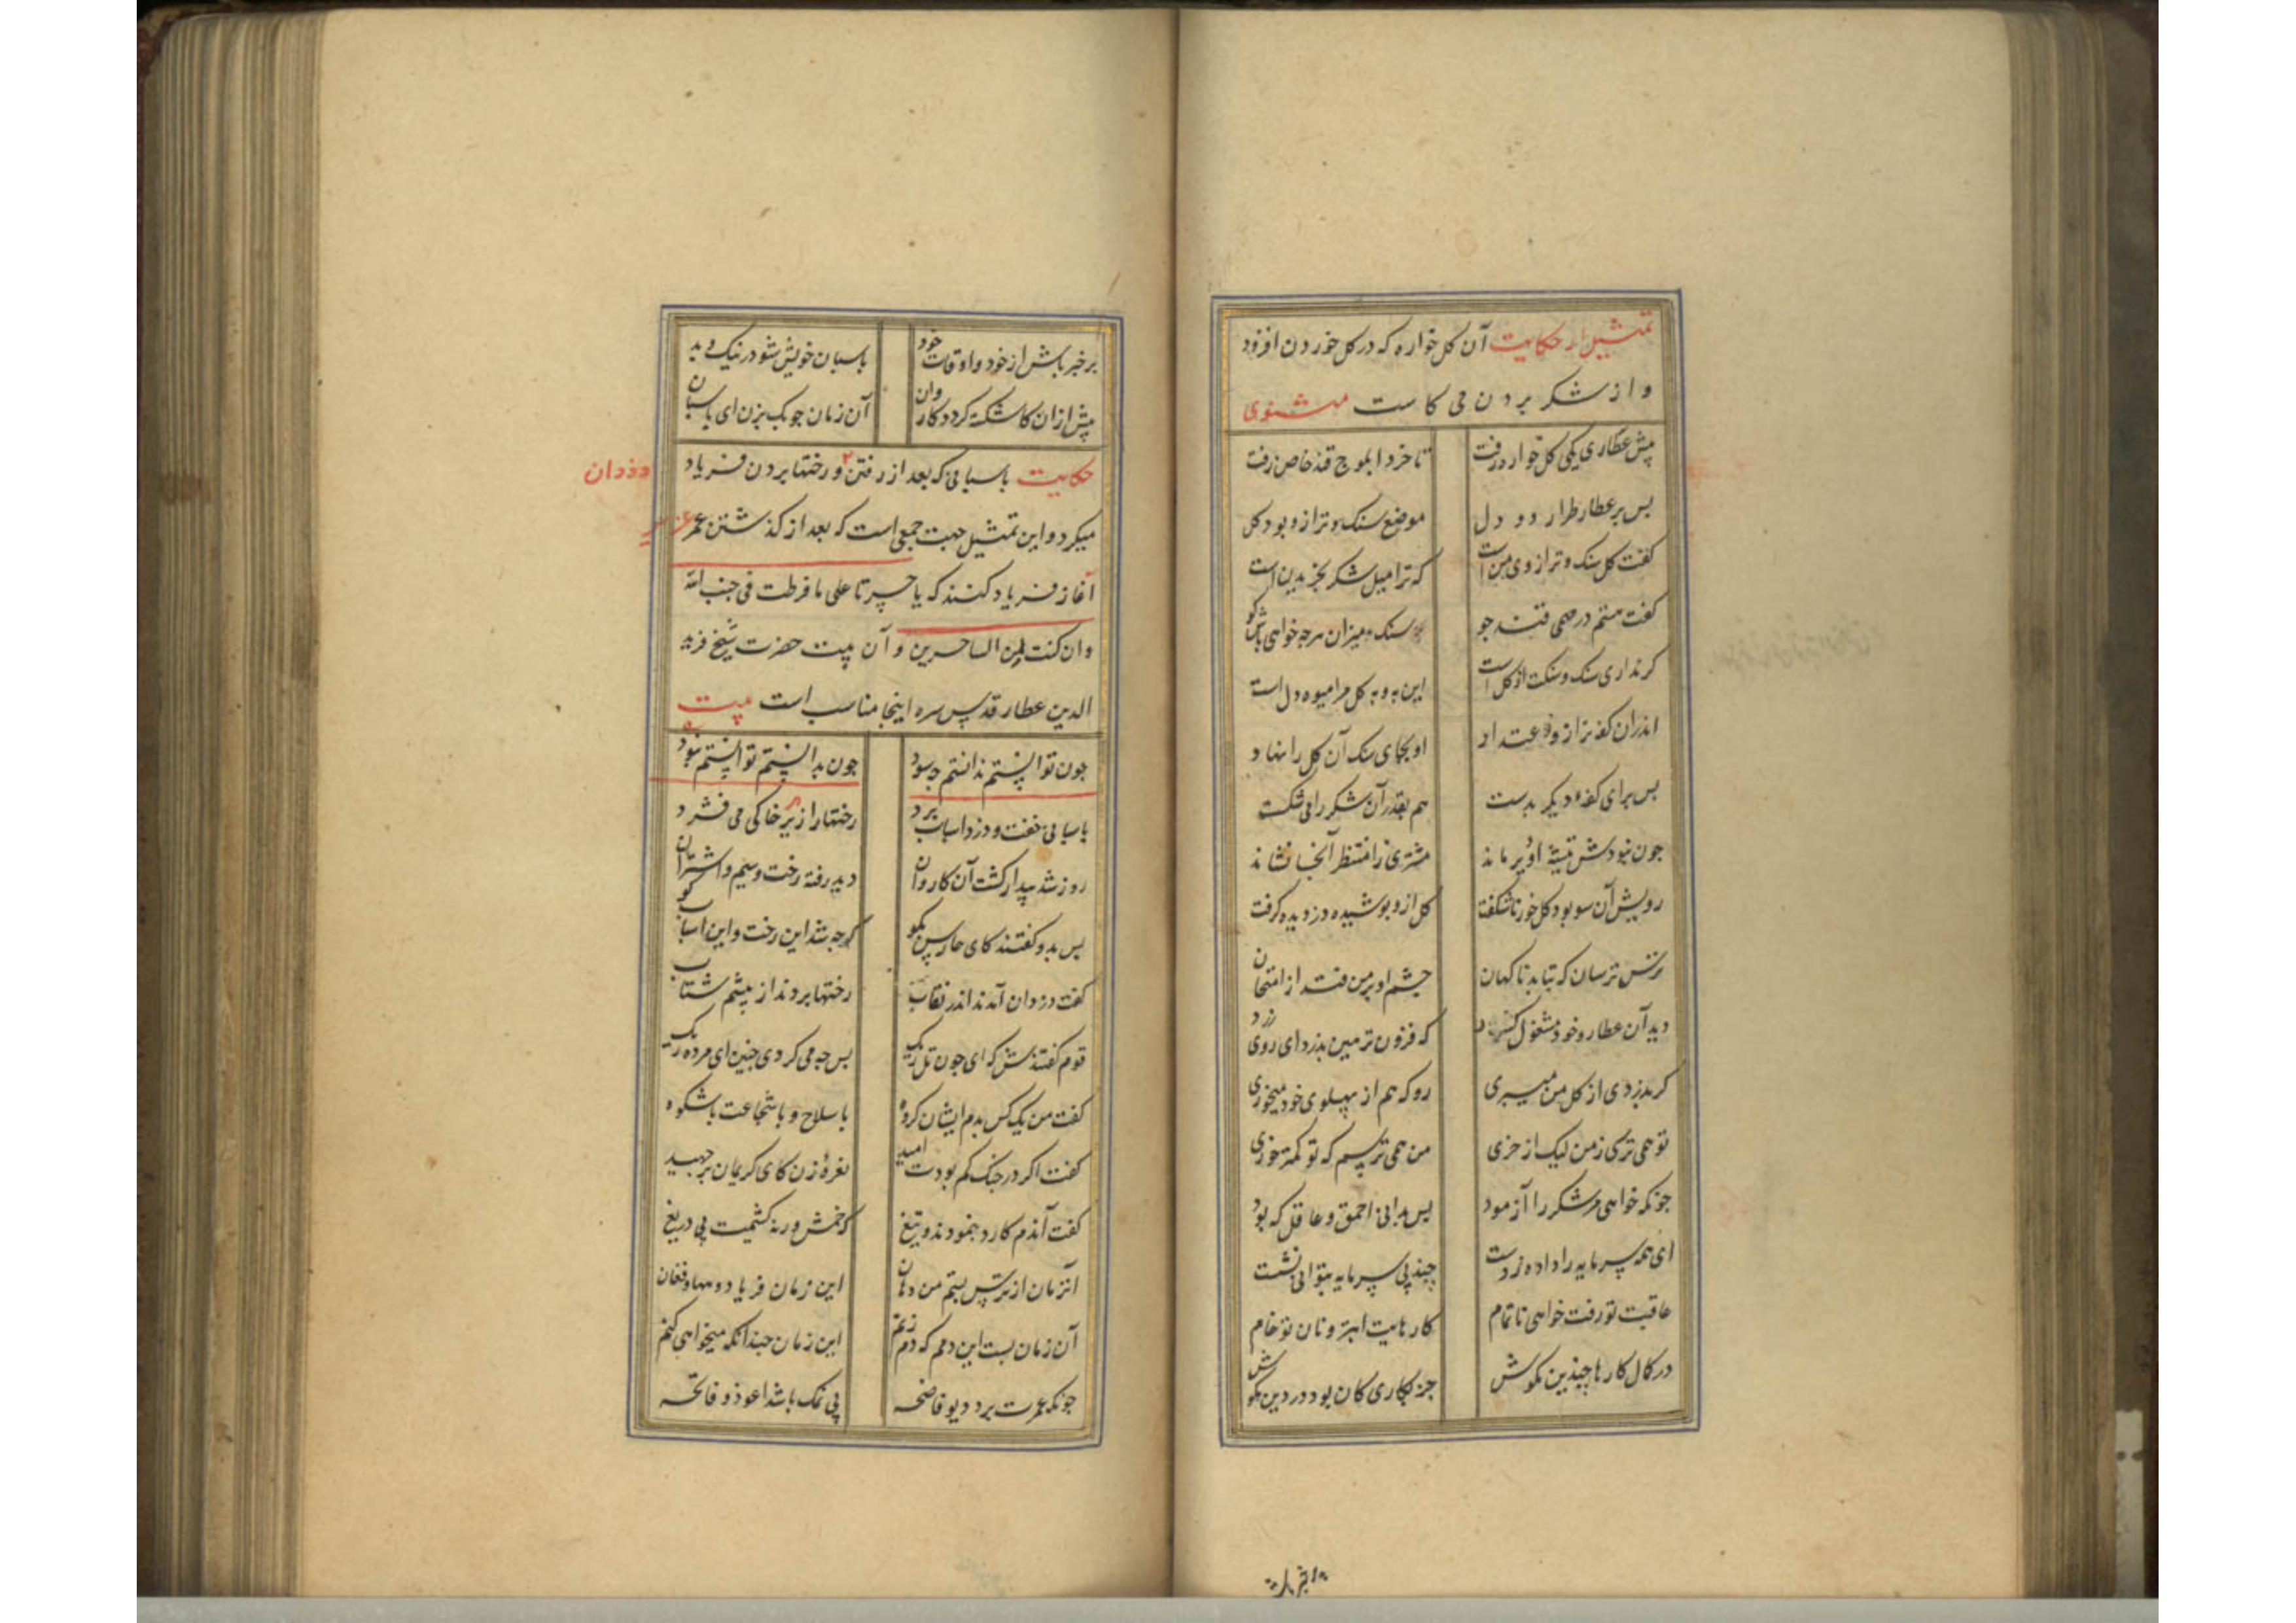 تمثیل از حکایت آن کل خواره که در کل خوردن افزود
و از شکر بردن می کاست مثنوی
پیش عطاری یکی کل خوار رفت تا خرد ابلوج قند خاص زفت
پس بر عطار طرار دو دل موضع سنک و ترازو بود کل
کفت کل سنک و ترازوی من است که ترا میل شکر بخریدن است
کفت هستم در مهمی قند جو سنک میزان هرچه خواهی باش کو
کر نداری سنک و سنکت از کل است این به و به کل مرا میوه دل است
اندران کفه ترازو ز اعتداد او بجای سنک آن کل را نهاد
پس برای کفه دیکر بدست هم بقدر آن شکر را می شکست
چون نبودش تیشه او دیر ماند مشتری را منتظر آنجا نشاند
رویش آن سو بود کل خور ناشکفت کل ازو پوشیده دزدیده کرفت
ترس ترسان که نیاید ناکهان چشم او بر من فتد از امتحان
دید آن عطار و خود مشغول کرد که فزون تر هین بدزد ای روی زرد
کر بدزدی از کل من میبری رو که هم از پهلوی خود میخوری
تو همی ترسی ز من لیک از خری من همی ترسم که تو کمتر خوری
چونکه خواهی مر شکر را آزمود پس بدانی احمق و عاقل که بود
ای همه سرمایه را داده ز دست چند بی سرمایه بتوانی نشست
عاقبت تو رفت خواهی ناتمام کارهایت ابتر و نان تو خام
در کمال کارها چندین مکوش جز بکاری کان بود در دین مکوش
بر خبر باش از خود و اوقات خود پاسبان خویش شو در نیک و بد
پیش ازان کاشکسته کردد کاروان آن زمان چوبک بزن ای پاسبان
حکایت پاسبانی که بعد از رفتن و رختها بردن فریاد دزدان
میکرد و این تمثیل جهت جمعی است که بعد از کذشتن عمر عزیز
آغاز فریاد کنند که یا حسرتا علی ما فرطت فی جنب الله
وان کنت لمن الساخرین و آن بیت حضرت شیخ فرید
الدین عطار قدس سره اینجا مناسب است بیت
چون توانستم ندانستم چه سود چون بدانستم توانستم نبود
پاسبانی خفت و دزد اسباب برد رختها را زیر خاکی می فشرد
روز شد بیدار کشت آن کاروان دید رفته رخت و سیم و اشتران
پس بدو کفتند کای حارس بکو که چه شد این رخت و این اسباب کو
کفت دزدان آمدند اندر نقاب رختها بردند از پیشم شتاب
قوم کفتندش که ای چون تل ریک پس چه می کردی چنین ای مرده ریک
کفت من یک کس بدم ایشان کروه با سلاح و با شجاعت با شکوه
کفت اکر در جنک کم بودت امید نعره زن کای کریمان بر جهید
کفت آندم کارد بنمودند و تیغ که خمش ورنه کشیمت بی دریغ
انزمان از ترس بستم من دهان این زمان فریاد و هیهای و فغان
آن زمان بست این دمم که دم زنم این زمان چندانکه میخواهی کنم
چونکه عمرت برد دیو فاضحه بی نمک باشد اعوذ و فاتحه